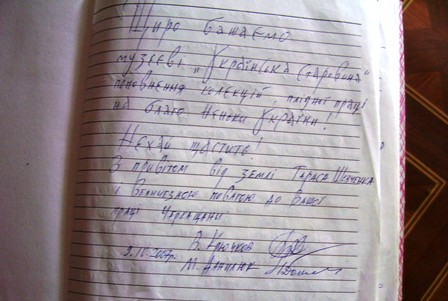 Щиро бажаємо
музеєві „Українська Старовина"
поповнення колекцій, плідної праці
на благо Неньки України!
Нехай щастить!
З привітом від землі Тараса Шевченка
і Величезною повагою до Вашої
праці Черкащани
В. Крючков
М.